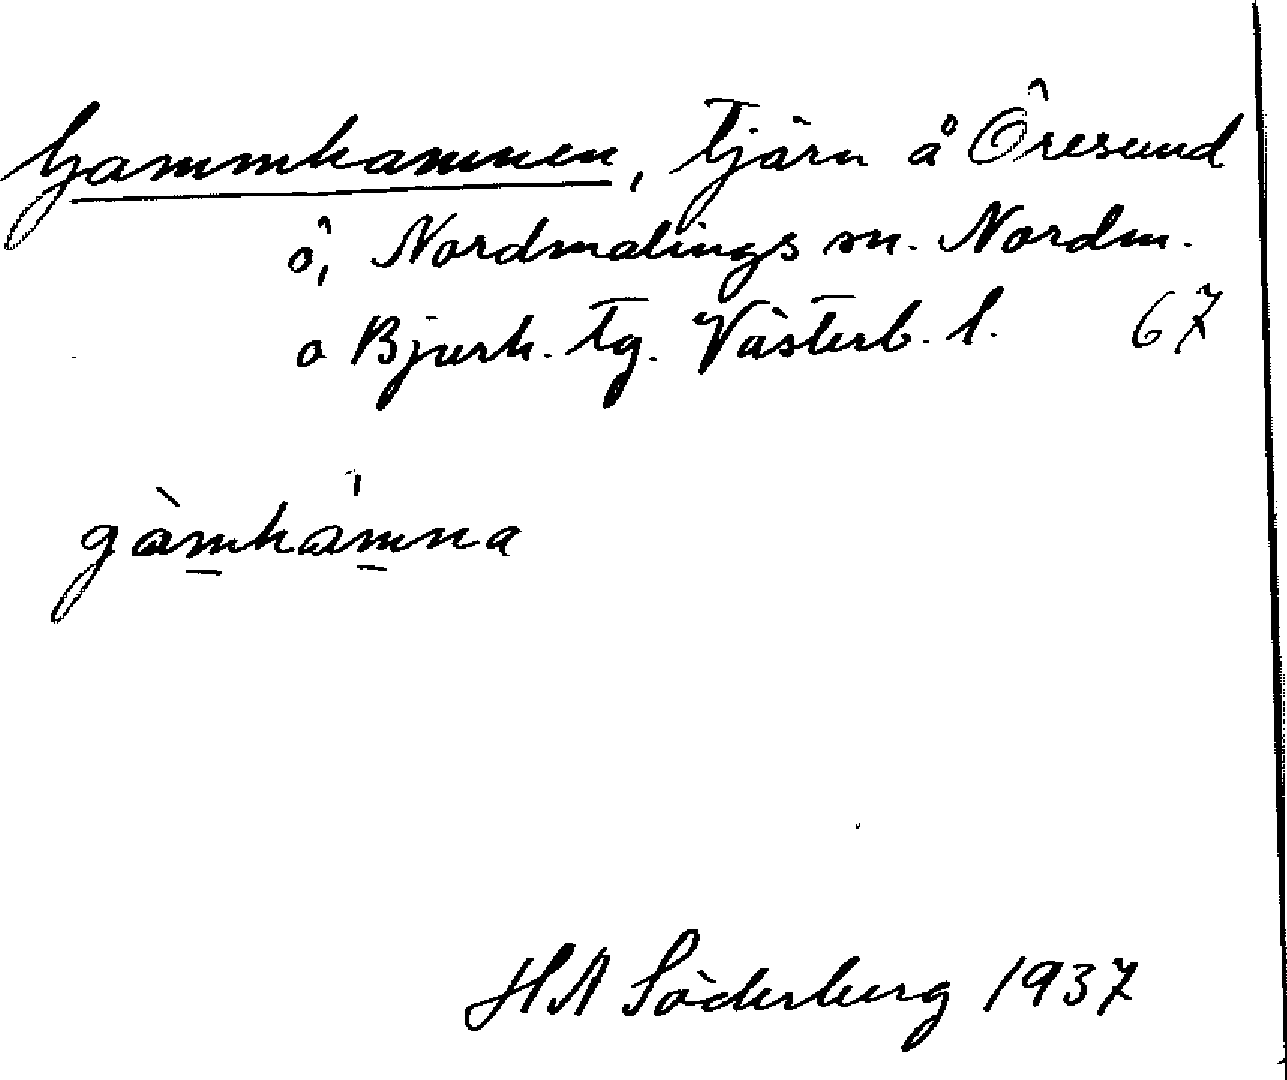 Gammhamnen, Tjärn å Öresund
ö, Nordmalings sn. Nordm.
o Bjurh. Tg. Västerb. l. 67
gàmhámna
HA Söderberg 1937